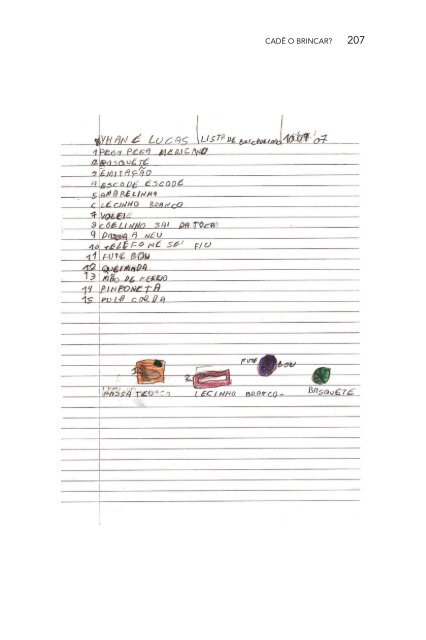 CADÊ O BRINCAR? 207
YHAN E LUCAS LISTA DE BRICADEIRAS 10 07 07
1 PEGA PEGA MERICANO
2 BASQUETE
3 EMITAÇÃO
4 ESCODE ESCODE
5 AMARELINHA
6 LECINHO BRANCO
7 VOLEI
8 COELINHO SAI DA TOCA
9 PASSA A NEU
10 TELEFONE SEI FIU
11 FUTE BOU
12 QUEIMADA
13 MÃO DE FERRO
14 PINPONETA
15 PULA CORDA
FUTE BOU
1
2
PASSA LECINHO BRANCO BASQUETE